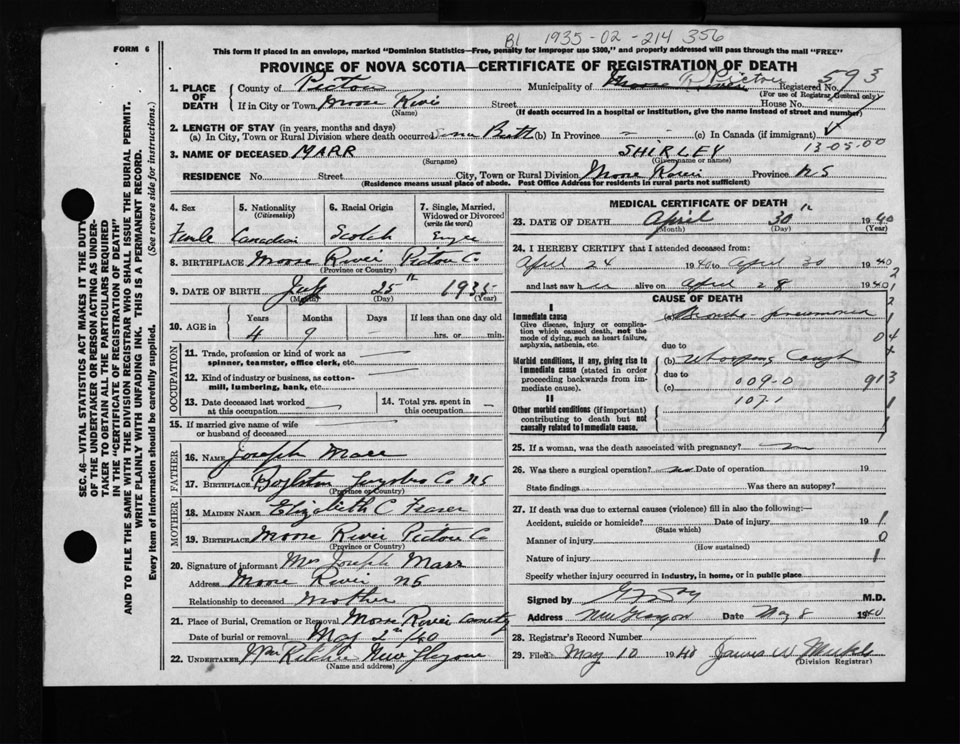 BI 1935-02-214356
FORM 6
This form if placed in an envelope, marked "Dominion Statistics—Free, penalty for improper use $300," and properly addressed will pass through the mail "FREE"
PROVINCE OF NOVA SCOTIA—CERTIFICATE OF REGISTRATION OF DEATH
593
1. PLACE OF DEATH
County of Pictou Municipality of Pictou Registered No.
(For use of Registrar General only)
If in City or Town Moose River Street House No.
(Name) (If death occurred in a hospital or institution, give the name instead of street and number)
2. LENGTH OF STAY (in years, months and days)
(a) In City, Town or Rural Division where death occurred Since Birth (b) In Province — - (c) In Canada (if immigrant)
13-05-00
3. NAME OF DECEASED MARR SHIRLEY
(Surname) (Given name or names)
RESIDENCE No. Street City, Town or Rural Division Moose River Province NS
(Residence means usual place of abode. Post Office Address for residents in rural parts not sufficient)
4. Sex 5. Nationality (Citizenship) 6. Racial Origin 7. Single, Married, Widowed or Divorced (write the word)
Female Canadian Scotch Single
8. BIRTHPLACE Moose River Pictou Co
(Province or Country)
9. DATE OF BIRTH July 25th 1935
(Month) (Day) (Year)
10. AGE in Years Months Days If less than one day old
4 9 — hrs. or min.
OCCUPATION
11. Trade, profession or kind of work as spinner, teamster, office clerk, etc. —
12. Kind of industry or business, as cotton-mill, lumbering, bank, etc. —
13. Date deceased last worked at this occupation — 14. Total yrs. spent in this occupation —
15. If married give name of wife or husband of deceased
FATHER
16. NAME Joseph Marr
17. BIRTHPLACE Boylston Guysboro Co NS
(Province or Country)
MOTHER
18. MAIDEN NAME Elizabeth C Fraser
19. BIRTHPLACE Moose River Pictou Co
(Province or Country)
20. Signature of informant Mrs Joseph Marr
Address Moose River NS
Relationship to deceased Mother
21. Place of Burial, Cremation or Removal Moose River Cemetery
Date of burial or removal May 2nd/40
22. UNDERTAKER Wm Ritchie New Glasgow
(Name and address)
MEDICAL CERTIFICATE OF DEATH
23. DATE OF DEATH April 30th 1940
(Month) (Day) (Year)
24. I HEREBY CERTIFY that I attended deceased from:
April 24 1940 to April 30 1940
and last saw her alive on April 28 1940
CAUSE OF DEATH
I
Immediate cause (a) Broncho-pneumonia
Give disease, injury or complication which caused death, not the mode of dying, such as heart failure, asphyxia, asthenia, etc.
due to
Morbid conditions, if any, giving rise to immediate cause (stated in order proceeding backwards from immediate cause).
(b) Whooping Cough
due to
(c) 009-0 913
107.1
II
Other morbid conditions (if important) contributing to death but not causally related to immediate cause.
25. If a woman, was the death associated with pregnancy?
26. Was there a surgical operation? no Date of operation 19
State findings Was there an autopsy?
27. If death was due to external causes (violence) fill in also the following:—
Accident, suicide or homicide? Date of injury 19
(State which)
Manner of injury
(How sustained)
Nature of injury
Specify whether injury occurred in industry, in home, or in public place
Signed by M.D.
Address New Glasgow Date May 8 1940
28. Registrar's Record Number
29. Filed May 10 1940 James W
(Division Registrar)
SEC. 46—VITAL STATISTICS ACT MAKES IT THE DUTY
OF THE UNDERTAKER OR PERSON ACTING AS UNDER-
TAKER TO OBTAIN ALL THE PARTICULARS REQUIRED
IN THE "CERTIFICATE OF REGISTRATION OF DEATH"
AND TO FILE THE SAME WITH THE DIVISION REGISTRAR WHO SHALL ISSUE THE BURIAL PERMIT.
WRITE PLAINLY WITH UNFADING INK. THIS IS A PERMANENT RECORD.
Every item of information should be carefully supplied. (See reverse side for instructions.)